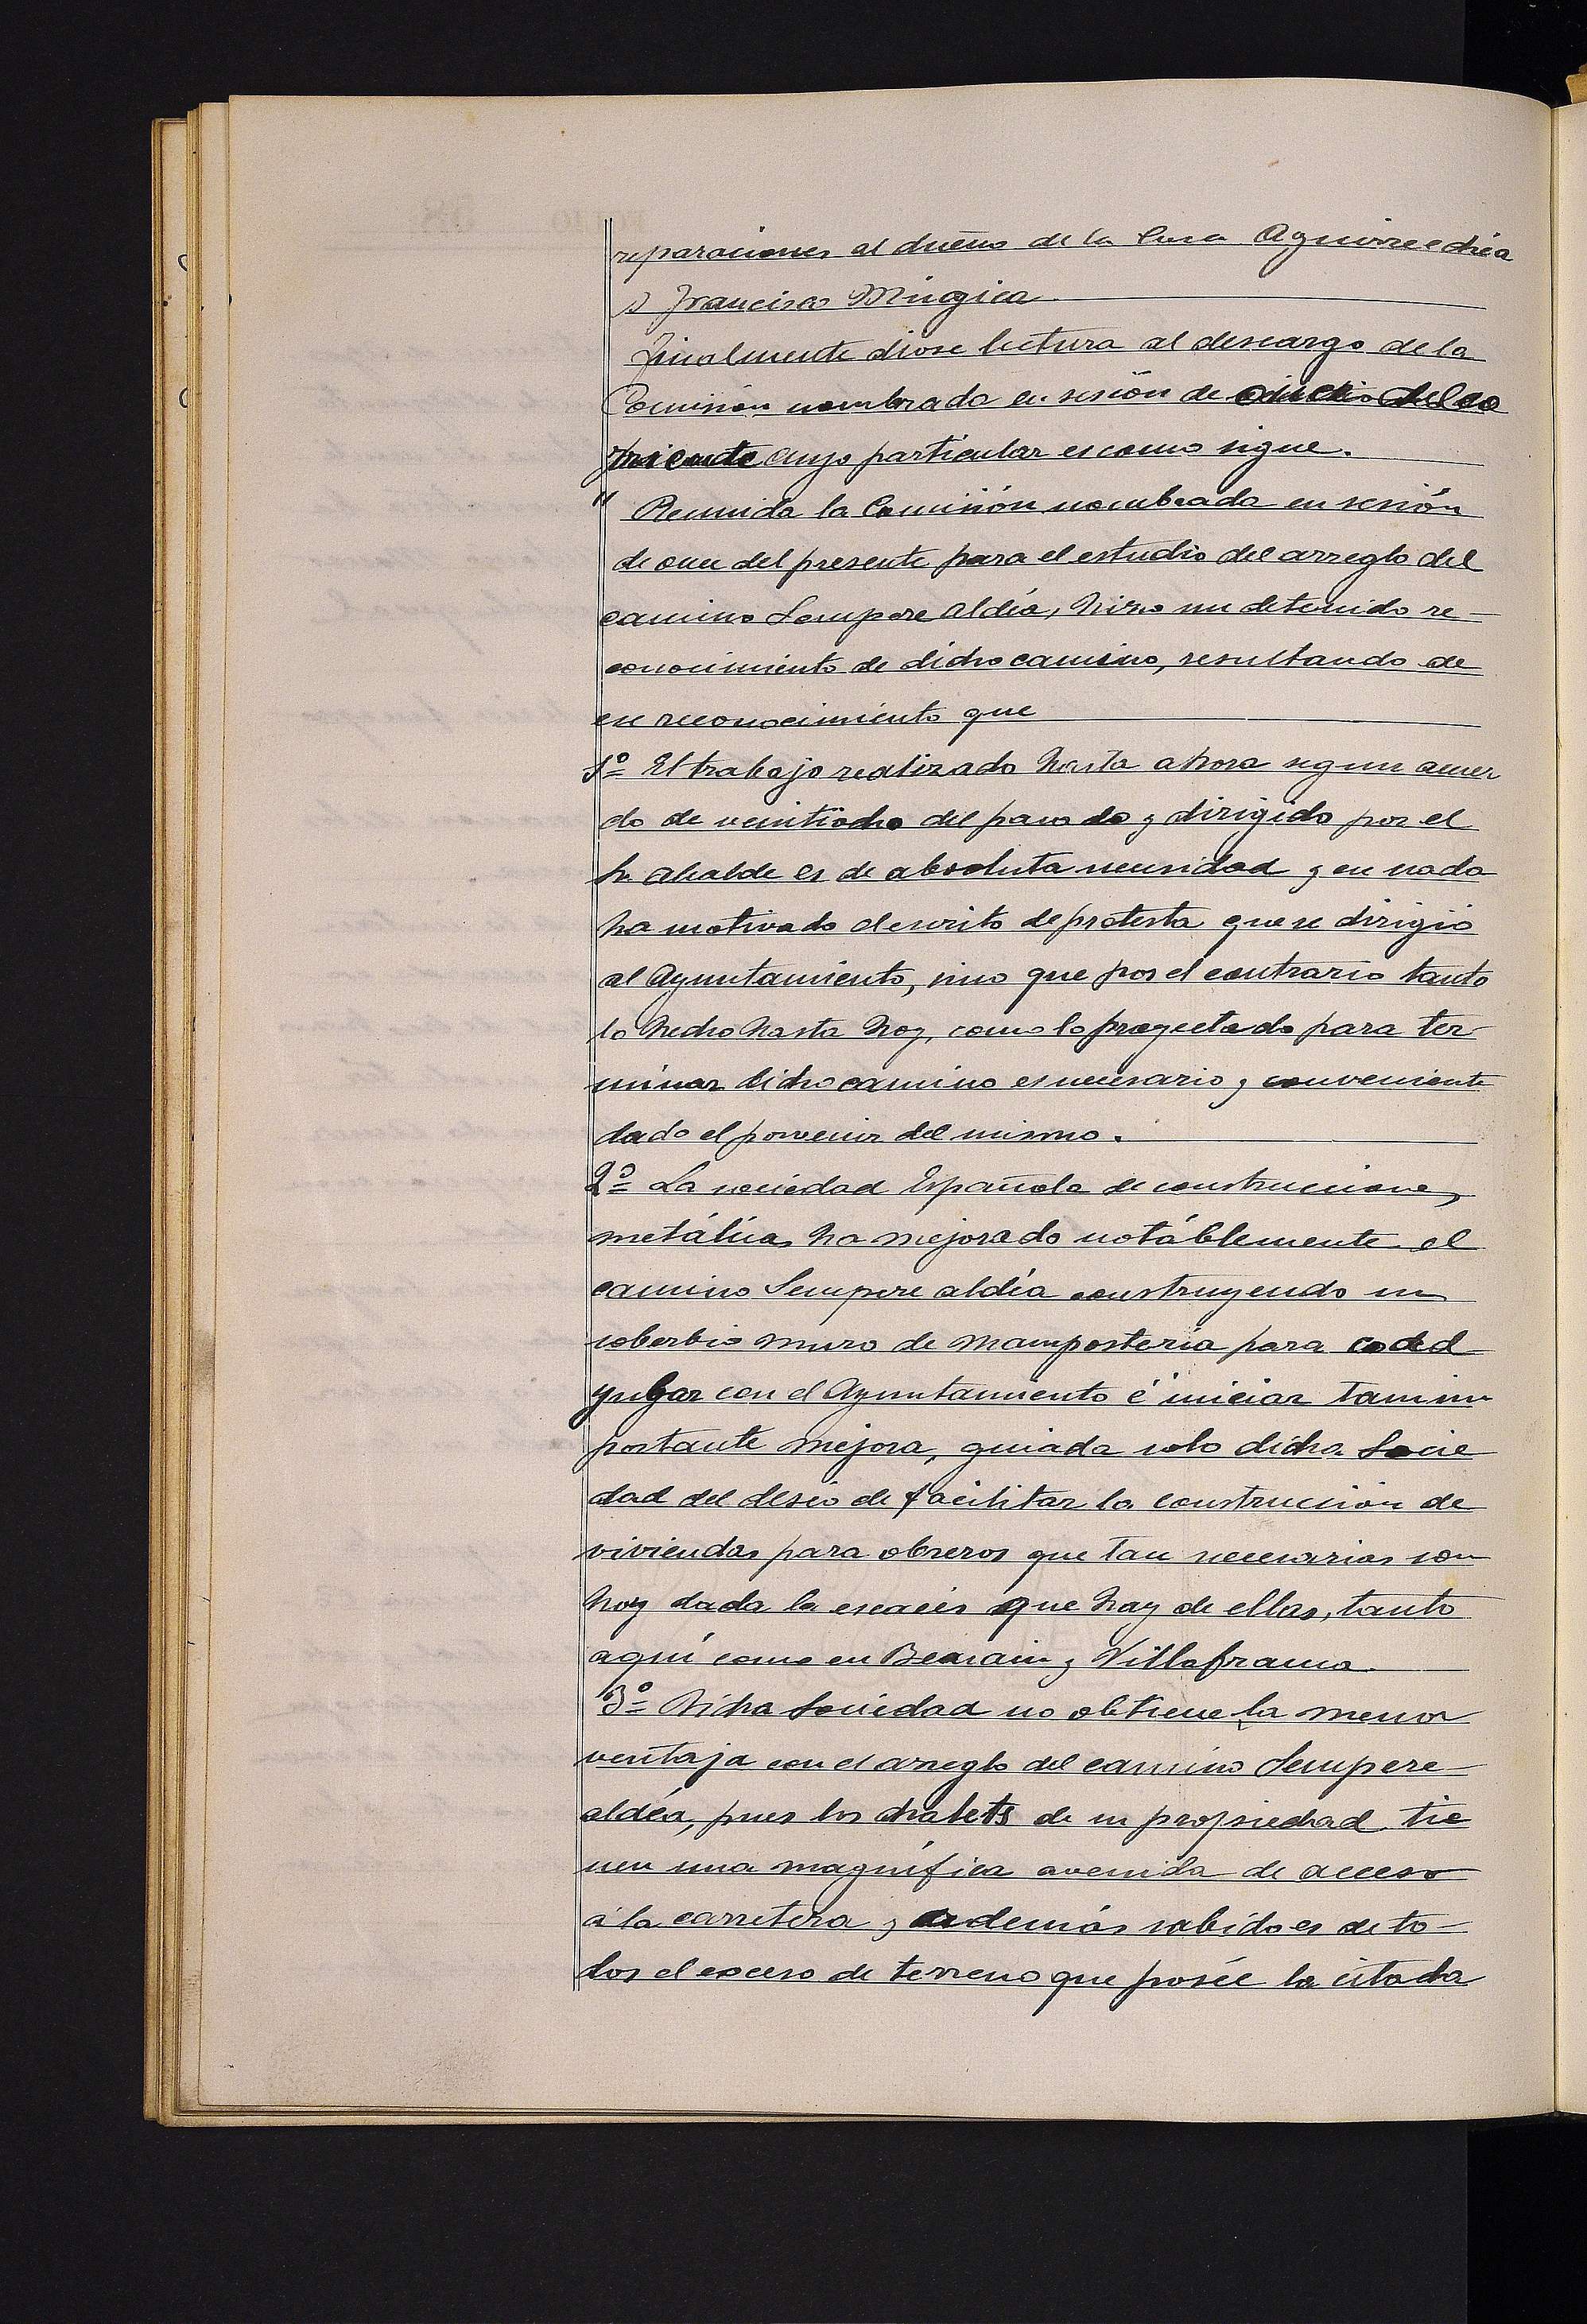 reparaciones al dueño de la Casa Aguirreechea
D Francisco Múgica
Finalmente diose lectura al descargo de la
Comisión nombrada en sesión de del co
rriente cuyo particular es como sigue.
" Reunida la Comisión nombrada en sesión
de once del presente para el estudio del arreglo del
camino Sempere aldéa, hizo un detenido re-
conocimiento de dicho camino, resultando de
ese reconocimiento que
1º El trabajo realizado hasta ahora segun acuer
do de veintiocho del pasado y dirigido por el
Sr. Alcalde es de absoluta necesidad y en nada
ha motivado el escrito de protesta que se dirigió
al Ayuntamiento, sino que por el contrario tanto
lo hecho hasta hoy, como lo proyectado para ter-
minar dicho camino es necesario y conveniente
dado el porvenir del mismo.
2º La sociedad Española de construcciones
metálicas ha mejorado notáblemente el
camino Sempere aldéa construyendo un
soberbio muro de mampostería para coad
yubar con el Ayuntamiento é iniciar tan im
portante mejora, guiada solo dicha Socie
dad del deseo de facilitar la construcción de
viviendas para obreros que tan necesarias son
hoy dada la escacés que hay de ellas, tanto
aquí como en Beasain y Villafranca.
3º Dicha Sociedad no obtiene la menor
ventaja con el arreglo del camino Sempere-
aldéa, pues los chalets de su propiedad tie
nen una magnífica avenida de acceso
á la carretera y además sabido es de to-
dos el exceso de terreno que posée la citada